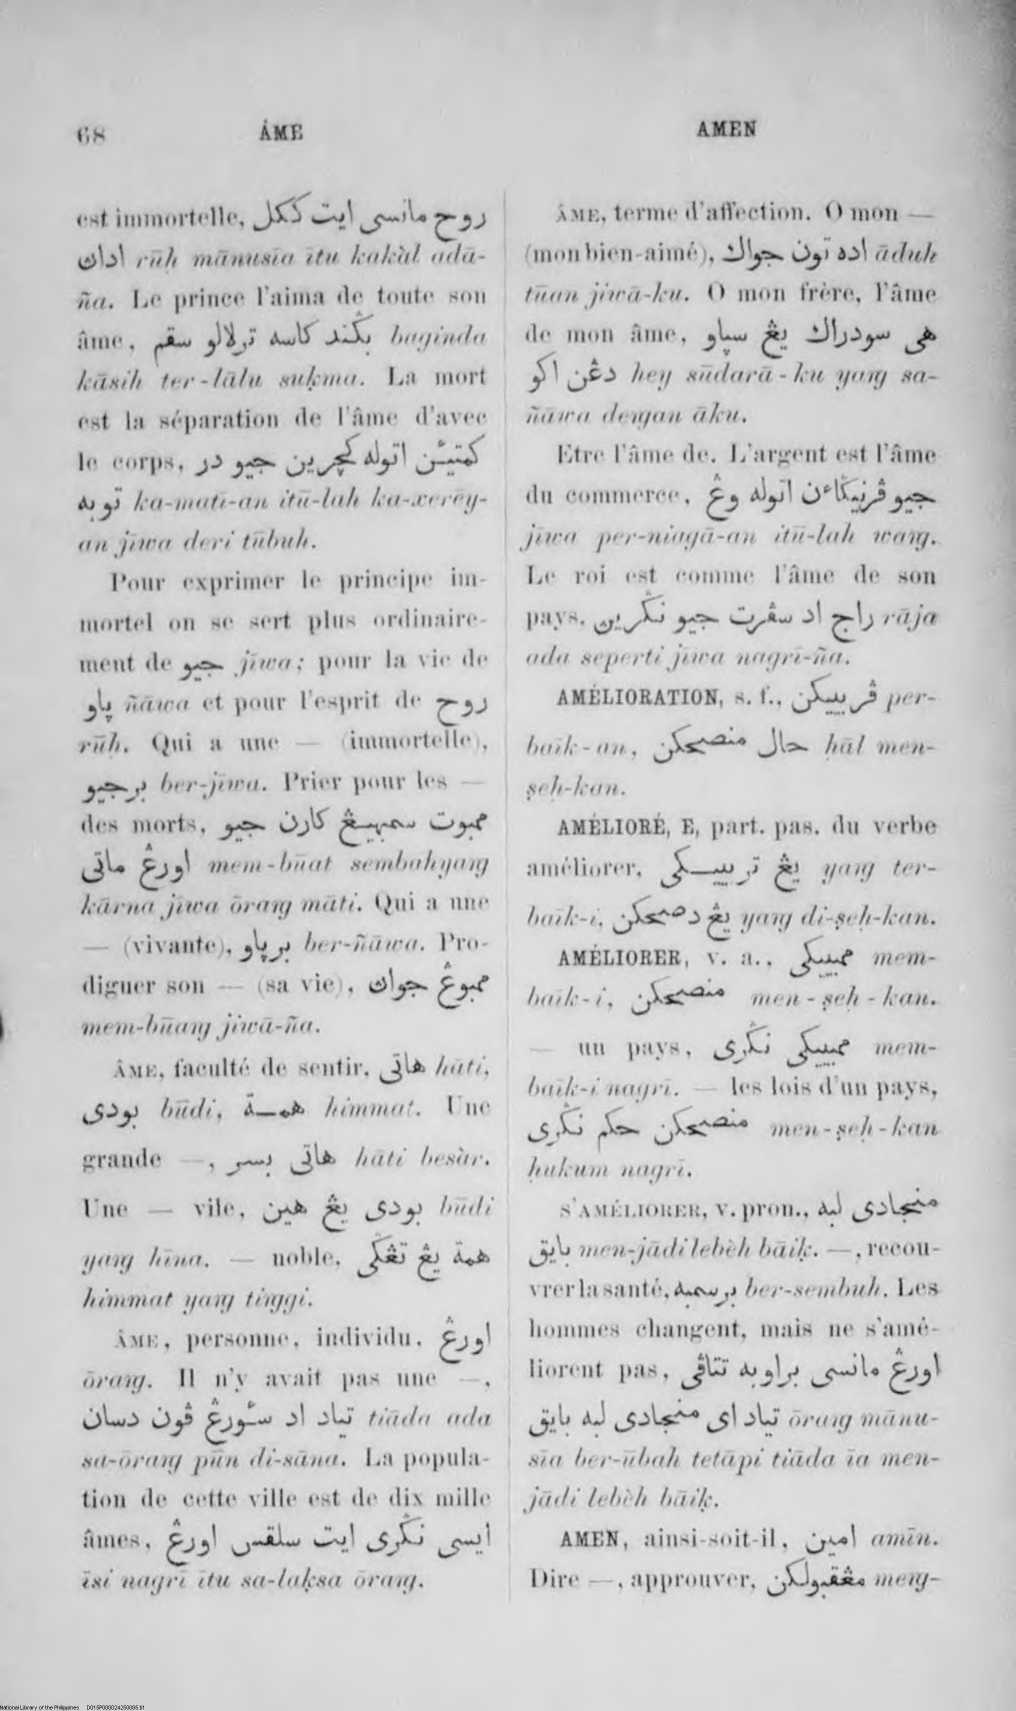 68 ÂME AMEN
est immortelle, روح مانسي ايت ككل
ادان rūḥ mānusīa ītu kakàl adā-
ña. Le prince l'aima de toute son
âme, بڬند كاسه ترلالو سقم baginda
kāsih ter-lālu suḳma. La mort
est la séparation de l'âme d'avec
le corps, كمتيئن اتوله كچرين جيو در
توبه ka-matī-an itū-lah ka-xerēy-
an jīwa deri tūbuh.
Pour exprimer le principe im-
mortel on se sert plus ordinaire-
ment de جيو jīwa; pour la vie de
ڽاو ñāwa et pour l'esprit de روح
rūḥ. Qui a une — (immortelle),
برجيو ber-jīwa. Prier pour les —
des morts, ممبوت سمبهيڠ كارن جيو
اورڠ ماتي mem-būat sembahyaṛg
kārna jīwa ōraṛg māti. Qui a une
— (vivante), برڽاو ber-ñāwa. Pro-
diguer son — (sa vie), ممبوڠ جوان
mem-būaṛg jiwā-ña.
ÂME, faculté de sentir, هاتي hāti,
بودي būdi, همة himmat. Une
grande —, هاتي بسر hāti besàr.
Une — vile, بودي يڠ هين būdi
yaṛg hīna. — noble, همة يڠ تڠڬي
himmat yaṛg tiṛggi.
ÂME, personne, individu, اورڠ
ōraṛg. Il n'y avait pas une —,
تياد اد سئورڠ ڤون دسان tiāda ada
sa-ōraṛg pūn di-sāna. La popula-
tion de cette ville est de dix mille
âmes, ايسي نڬري ايت سلقس اورڠ
īsi nagrī ītu sa-laḳsa ōraṛg.
ÂME, terme d'affection. O mon —
(mon bien-aimé), اده تون جواك āduh
tūan jiwā-ku. O mon frère, l'âme
de mon âme, هي سودراك يڠ سڽاو
دڠن اكو hey sūdarā-ku yaṛg sa-
ñāwa deṛgan āku.
Etre l'âme de. L'argent est l'âme
du commerce, جيو ڤرنيڬاءن اتوله وڠ
jīwa per-niagā-an itū-lah waṛg.
Le roi est comme l'âme de son
pays, راج اد سڤرت جيو نڬرين rāja
ada seperti jīwa nagrī-ña.
AMÉLIORATION, s. f., ڤربييكن per-
baīk-an, حال منصحكن ḥāl men-
ṣeḥ-kan.
AMÉLIORÉ, E, part. pas. du verbe
améliorer, يڠ تربييكي yaṛg ter-
baīk-i, يڠ دصحكن yaṛg di-ṣeḥ-kan.
AMÉLIORER, v. a., ممبييكي mem-
baīk-i, منصحكن men-ṣeḥ-kan.
— un pays, ممبييكي نڬري mem-
baīk-i nagrī. — les lois d'un pays,
منصحكن حكم نڬري men-ṣeḥ-kan
ḥukum nagrī.
S'AMÉLIORER, v. pron., منجادي لبه
بايق men-jādi lebèh bāiḳ. —, recou-
vrer la santé, برسمبه ber-sembuh. Les
hommes changent, mais ne s'amé-
liorent pas, اورڠ مانسي براوبه تتاڤي
تياد اي منجادي لبه بايق ōraṛg mānu-
sīa ber-ūbah tetāpi tiāda īa men-
jādi lebèh bāiḳ.
AMEN, ainsi-soit-il, امين amīn.
Dire —, approuver, مڠقبولكن meṛg-
National Library of the Philippines